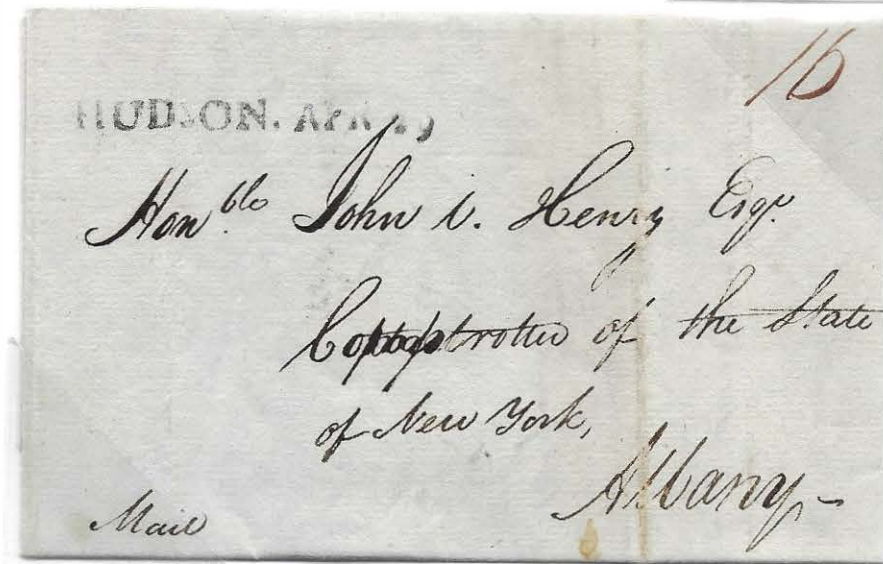 16
HUDSON. APR 29
Hon.ble John V. Henry Esqr.
of the State
of New York,
Albany
Mail